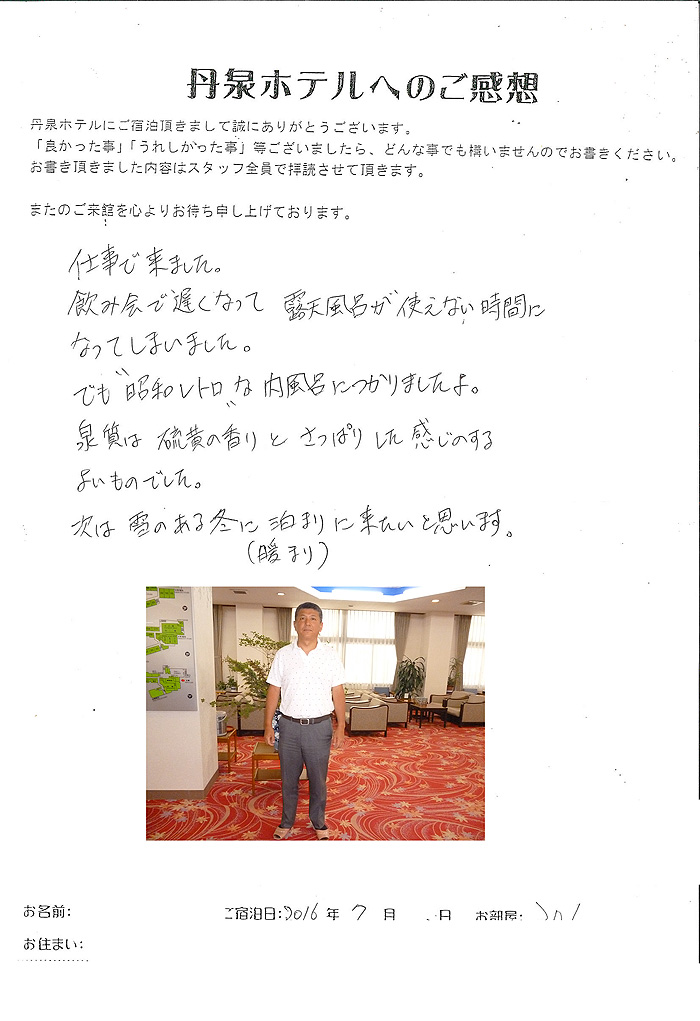 丹泉ホテルへのご感想
丹泉ホテルにご宿泊頂きまして誠にありがとうございます。
「良かった事」「うれしかった事」等ございましたら、どんな事でも構いませんのでお書きください。
お書き頂きました内容はスタッフ全員で拝読させて頂きます。
またのご来館を心よりお待ち申し上げております。
仕事で来ました。
飲み会で遅くなって 露天風呂が使えない時間に
なってしまいました。
でも"昭和レトロ"な内風呂につかりましたよ。
泉質は 硫黄の香りと さっぱりした感じのする
よいものでした。
次は雪のある冬に泊まりに来たいと思います。
(暖まり)
お名前: ご宿泊日:2016年 7月 日 お部屋:
お住まい: